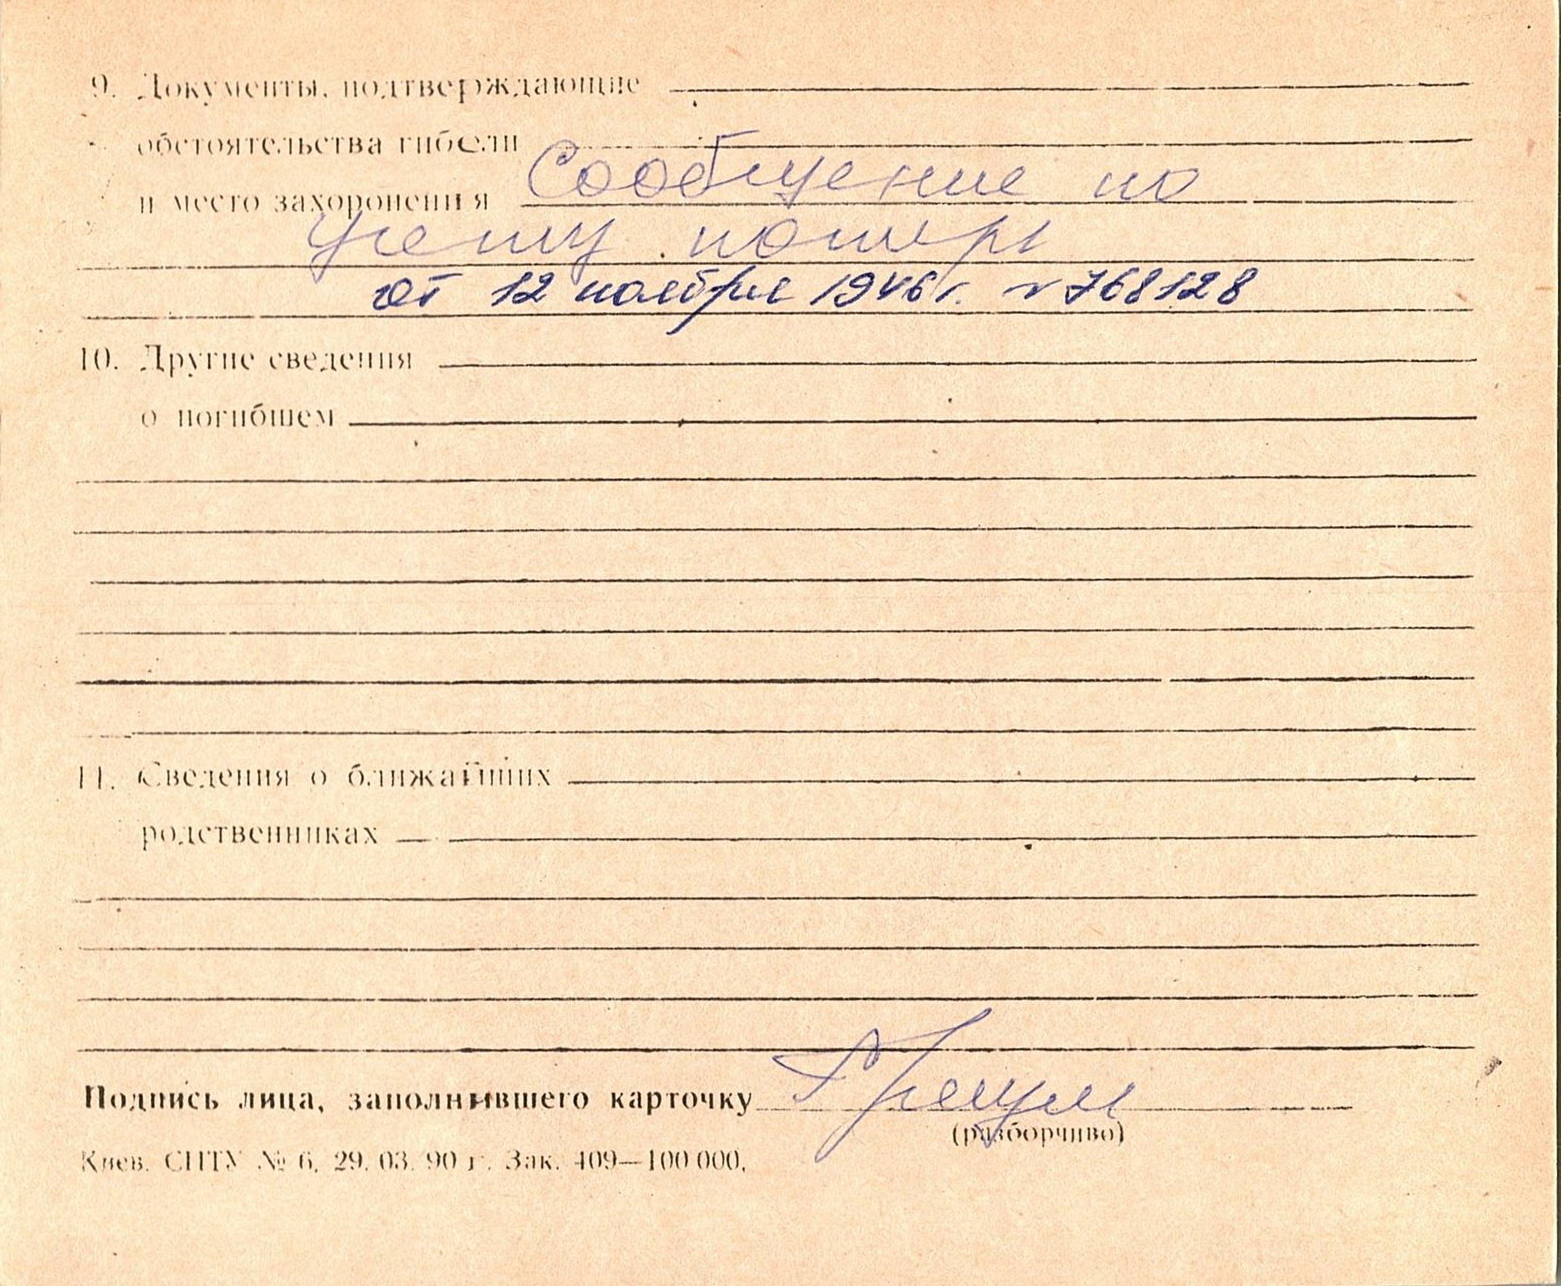 9. Документы, подтверждающие
обстоятельства гибели
и место захоронения Сообщение по
учету потерь
от 12 ноября 1946 г. № 768128
10. Другие сведения
о погибшем
11. Сведения о ближайших
родственниках
Подпись лица, заполнившего карточку
(разборчиво)
Киев. СПТУ № 6. 29. 03. 90 г. Зак. 409—100 000.